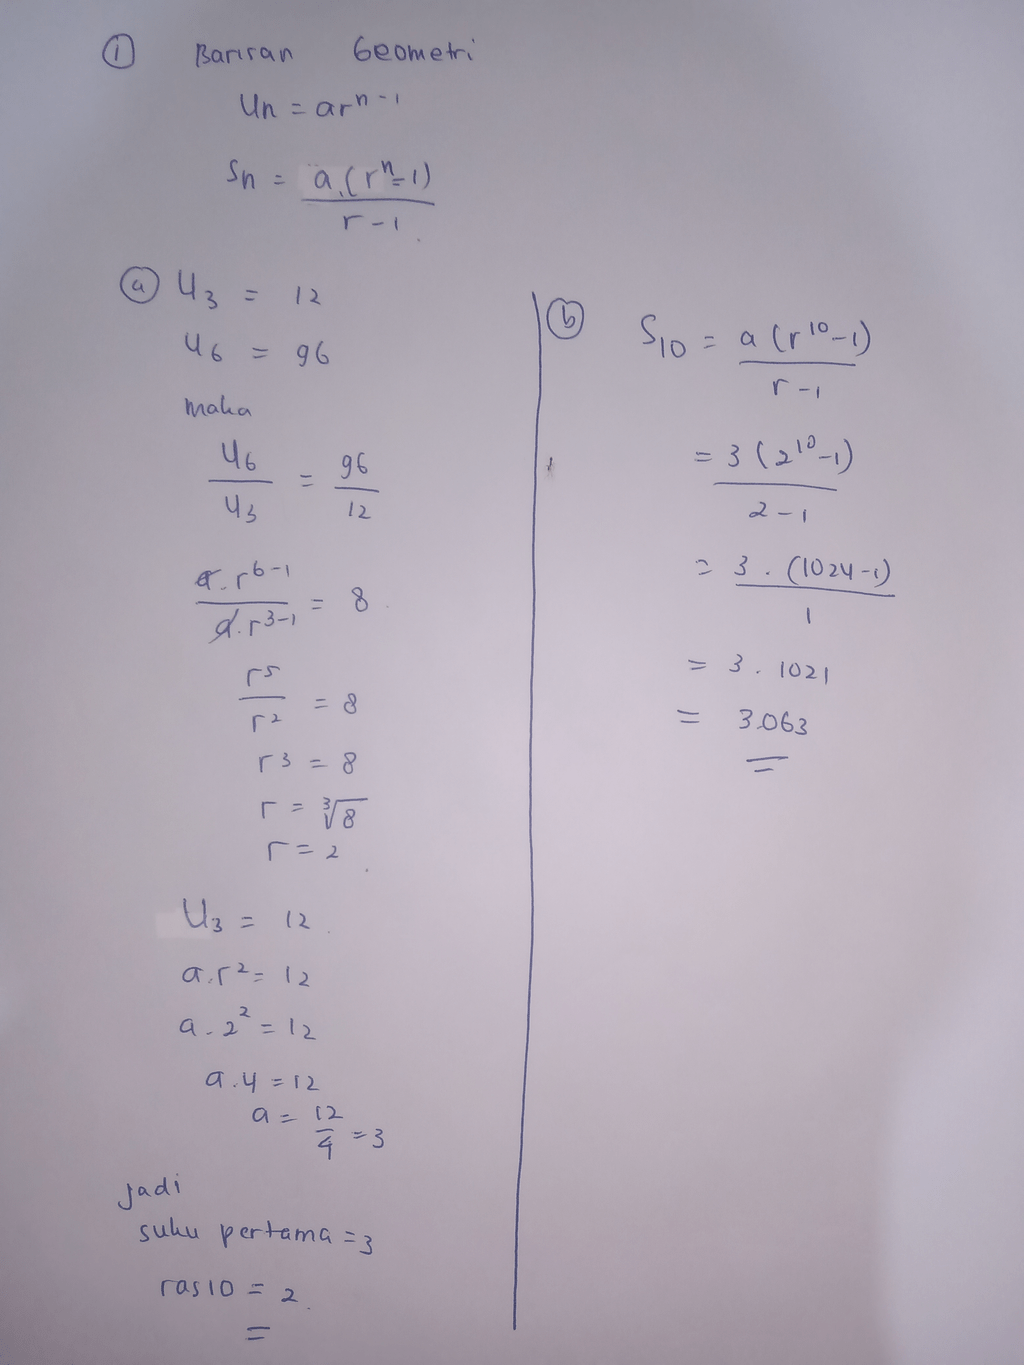 ① Barisan Geometri
Un = ar^n-1
Sn = a.(r^n-1) / r-1
ⓐ U3 = 12
U6 = 96
maka
U6 / U3 = 96 / 12
a.r^6-1 / a.r^3-1 = 8
r^5 / r^2 = 8
r^3 = 8
r = ³√8
r = 2
U3 = 12
a.r^2 = 12
a.2^2 = 12
a.4 = 12
a = 12 / 4 = 3
Jadi
suku pertama = 3
rasio = 2
ⓑ S10 = a(r^10-1) / r-1
= 3(2^10-1) / 2-1
= 3.(1024-1) / 1
= 3.1021
= 3.063